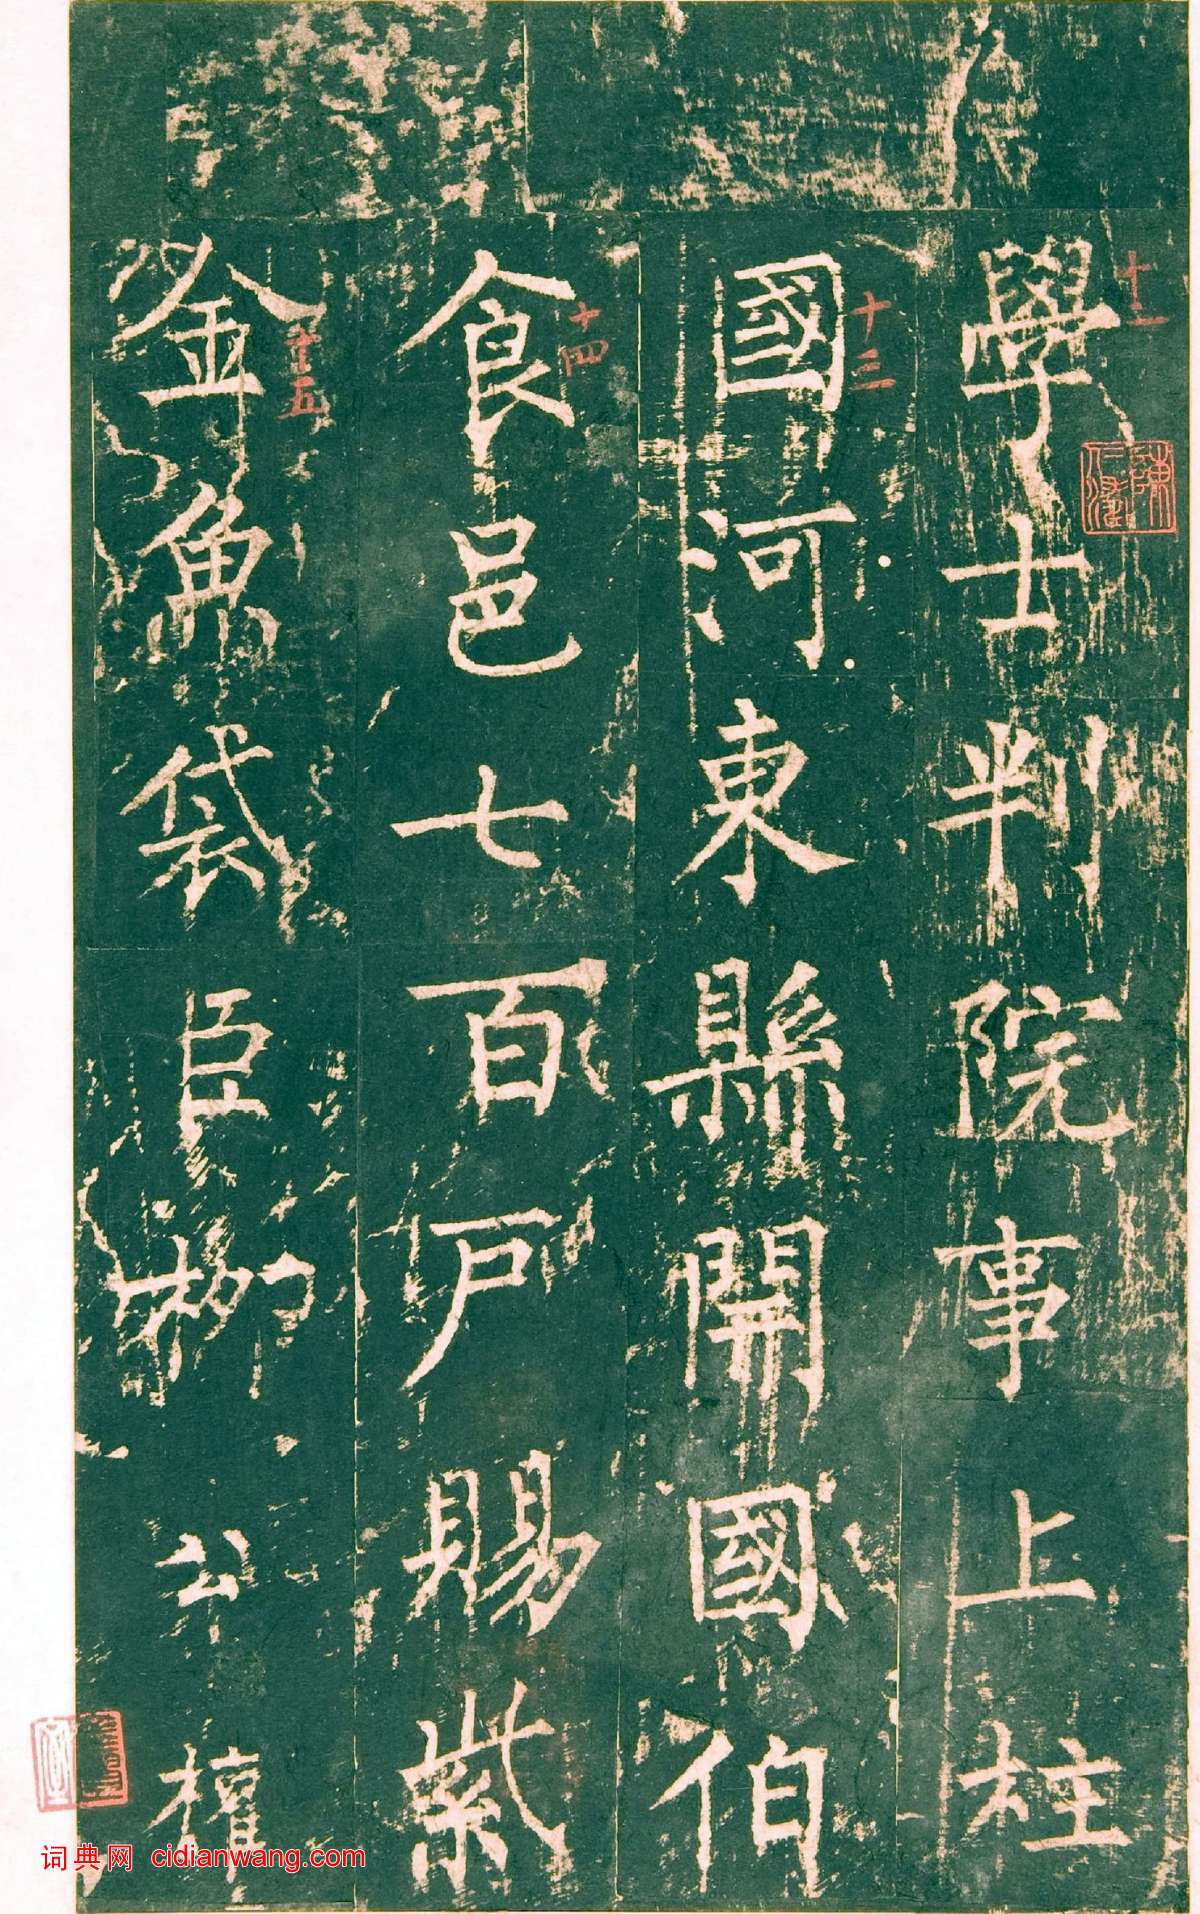 十二
學士判院事上柱
十三
國河東縣開國伯
十四
食邑七百戶賜紫
十五
金魚袋臣柳公權
词典网 cidianwang.com